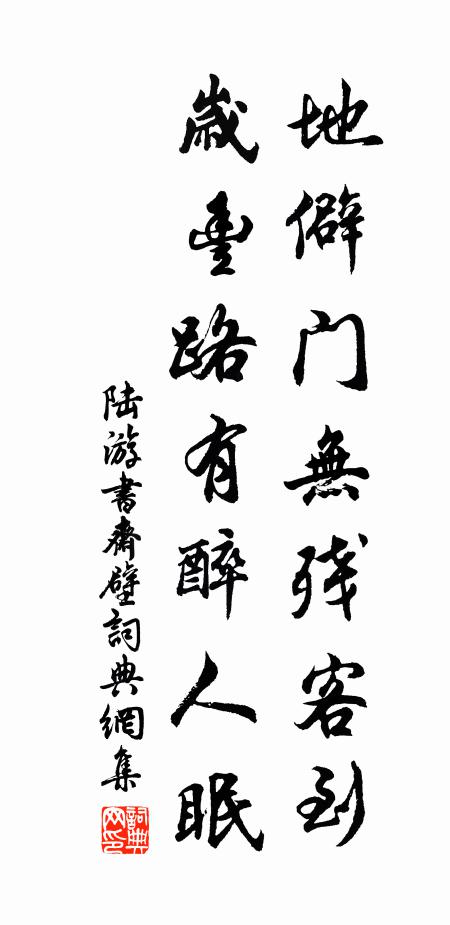 地僻門無殘客到
歲豐路有醉人眠
陸游書齋壁詞典網集
詞典
网印